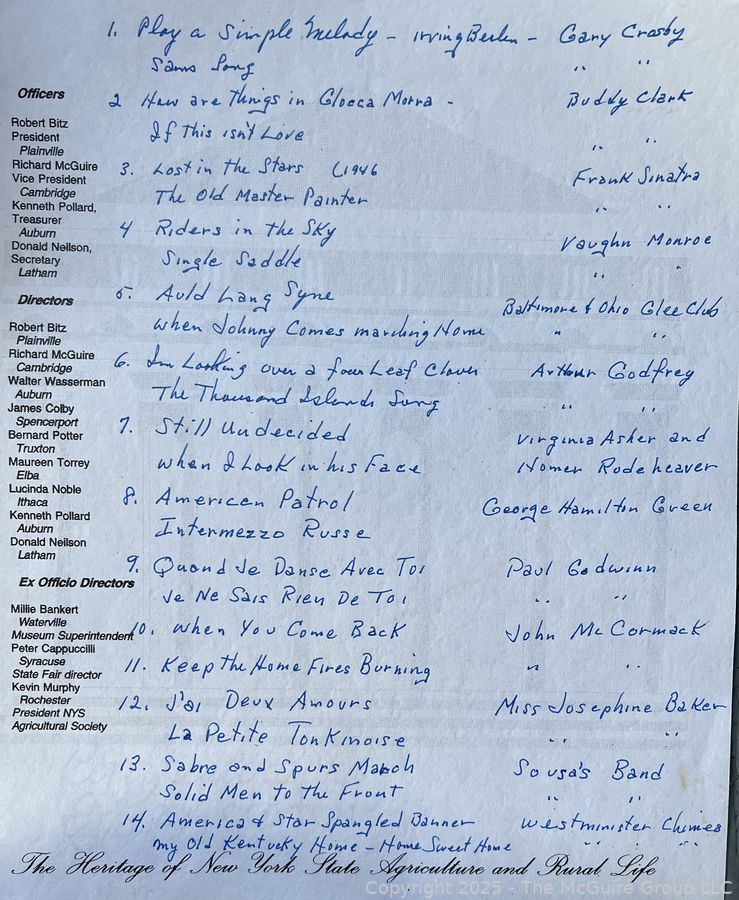 1. Play a Simple Melody - irving Berlin - Gary Crosby
Sams Song " "
2 How are Things in Glocca Morra - Buddy Clark
If this isn't Love " "
3. Lost in the Stars (1946 Frank Sinatra
The Old Master Painter " "
4 Riders in the Sky Vaughn Monroe
Single Saddle " "
5. Auld Lang Syne Baltimore & Ohio Glee Club
When Johnny Comes marching Home " "
6. Im Looking over a four Leaf Clover Arthur Godfrey
The Thousand Islands Song " "
7. Still Undecided Virginia Asher and
When I Look in his Face Homer Rodeheaver
8. American Patrol George Hamilton Green
Intermezzo Russe
9. Quand Je Danse Avec Toi Paul Godwinn
Je Ne Sais Rien De Toi " "
10. When You Come Back John McCormack
11. Keep the Home Fires Burning " "
12. J'ai Deux Amours Miss Josephine Baker
La Petite Tonkinoise " "
13. Sabre and Spurs March Sousa's Band
Solid Men to the Front " "
14. America & Star Spangled Banner Westminister Chimes
my Old Kentucky Home - Home Sweet Home " "
Officers
Robert Bitz
President
Plainville
Richard McGuire
Vice President
Cambridge
Kenneth Pollard,
Treasurer
Auburn
Donald Neilson,
Secretary
Latham
Directors
Robert Bitz
Plainville
Richard McGuire
Cambridge
Walter Wasserman
Auburn
James Colby
Spencerport
Bernard Potter
Truxton
Maureen Torrey
Elba
Lucinda Noble
Ithaca
Kenneth Pollard
Auburn
Donald Neilson
Latham
Ex Officio Directors
Millie Bankert
Waterville
Museum Superintendent
Peter Cappuccilli
Syracuse
State Fair director
Kevin Murphy
Rochester
President NYS
Agricultural Society
The Heritage of New York State Agriculture and Rural Life
Copyright 2025 - The McGuire Group LLC